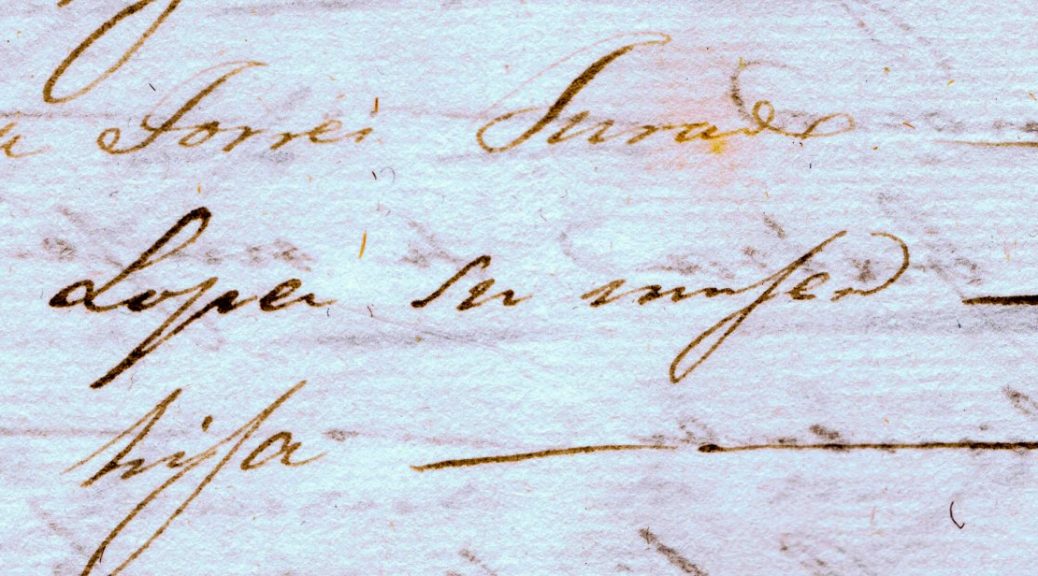 Torres Jurado
Lopes su muger
hija